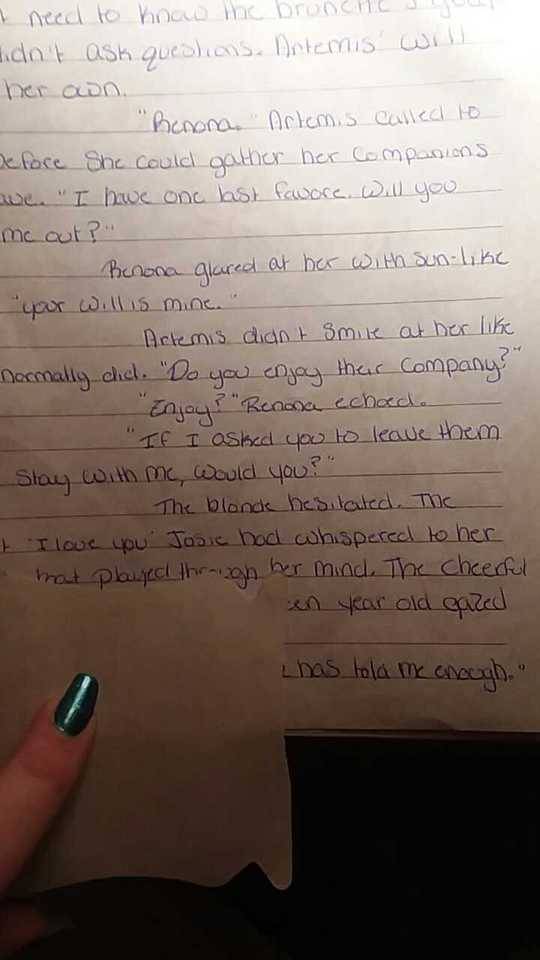 need to know the brunette's
didn't ask questions. Artemis' will
her own.
"Renona." Artemis called to
before she could gather her companions
"I have one last favore. Will you
me out?"
Renona glared at her with sun-like
"your will is mine."
Artemis didn't smile at her like
normally did. "Do you enjoy their company?"
"Enjoy?" Renona echoed.
"If I asked you to leave them
stay with me, would you?"
The blonde hesitated. The
'I love you' Josie had whispered to her
that played through her mind. The cheerful
year old gazed
has told me enough."